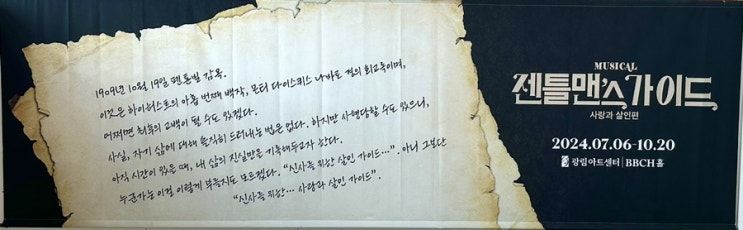 1909년 10월 19일 펜톤빌 감옥.
이것은 하이허스트의 아홉 번째 백작, 몬티 다이스퀴스 나바로 경의 회고록이며,
어쩌면 최후의 고백이 될 수도 있겠다.
사실, 자기 삶에 대해 솔직히 드러내는 법은 없다. 하지만 사형당할 수도 있으니,
아직 시간이 있을 때, 내 삶의 진실만은 기록해두고자 한다.
누군가는 이걸 이렇게 부를지도 모르겠다. “신사를 위한 살인 가이드…”. 아니 그보단
“신사를 위한… 사랑과 살인 가이드”.
MUSICAL
젠틀맨's 가이드
사랑과 살인편
2024.07.06-10.20
광림아트센터 | BBCH홀